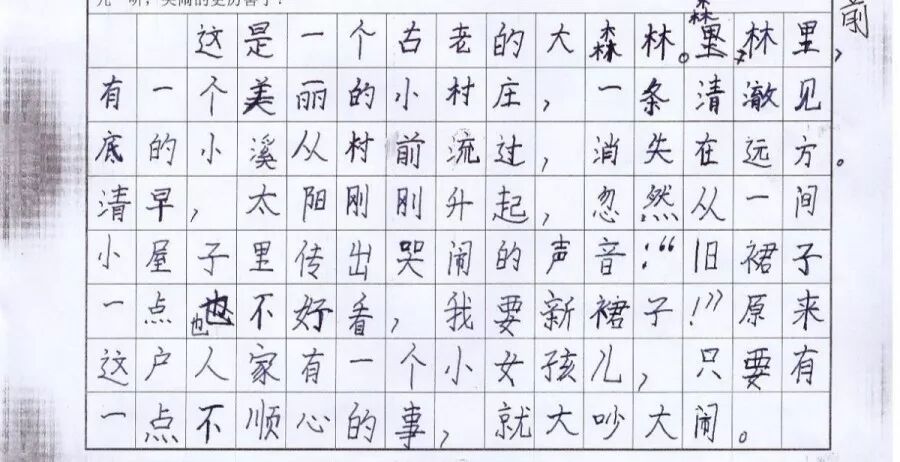 前
这是一个古老的大森林。森林里,
有一个美丽的小村庄,一条清澈见
底的小溪从村前流过,消失在远方。
清早,太阳刚刚升起,忽然从一间
小屋子里传出哭闹的声音:“旧裙子
一点也不好看,我要新裙子!”原来
这户人家有一个小女孩儿,只要有
一点不顺心的事,就大吵大闹。